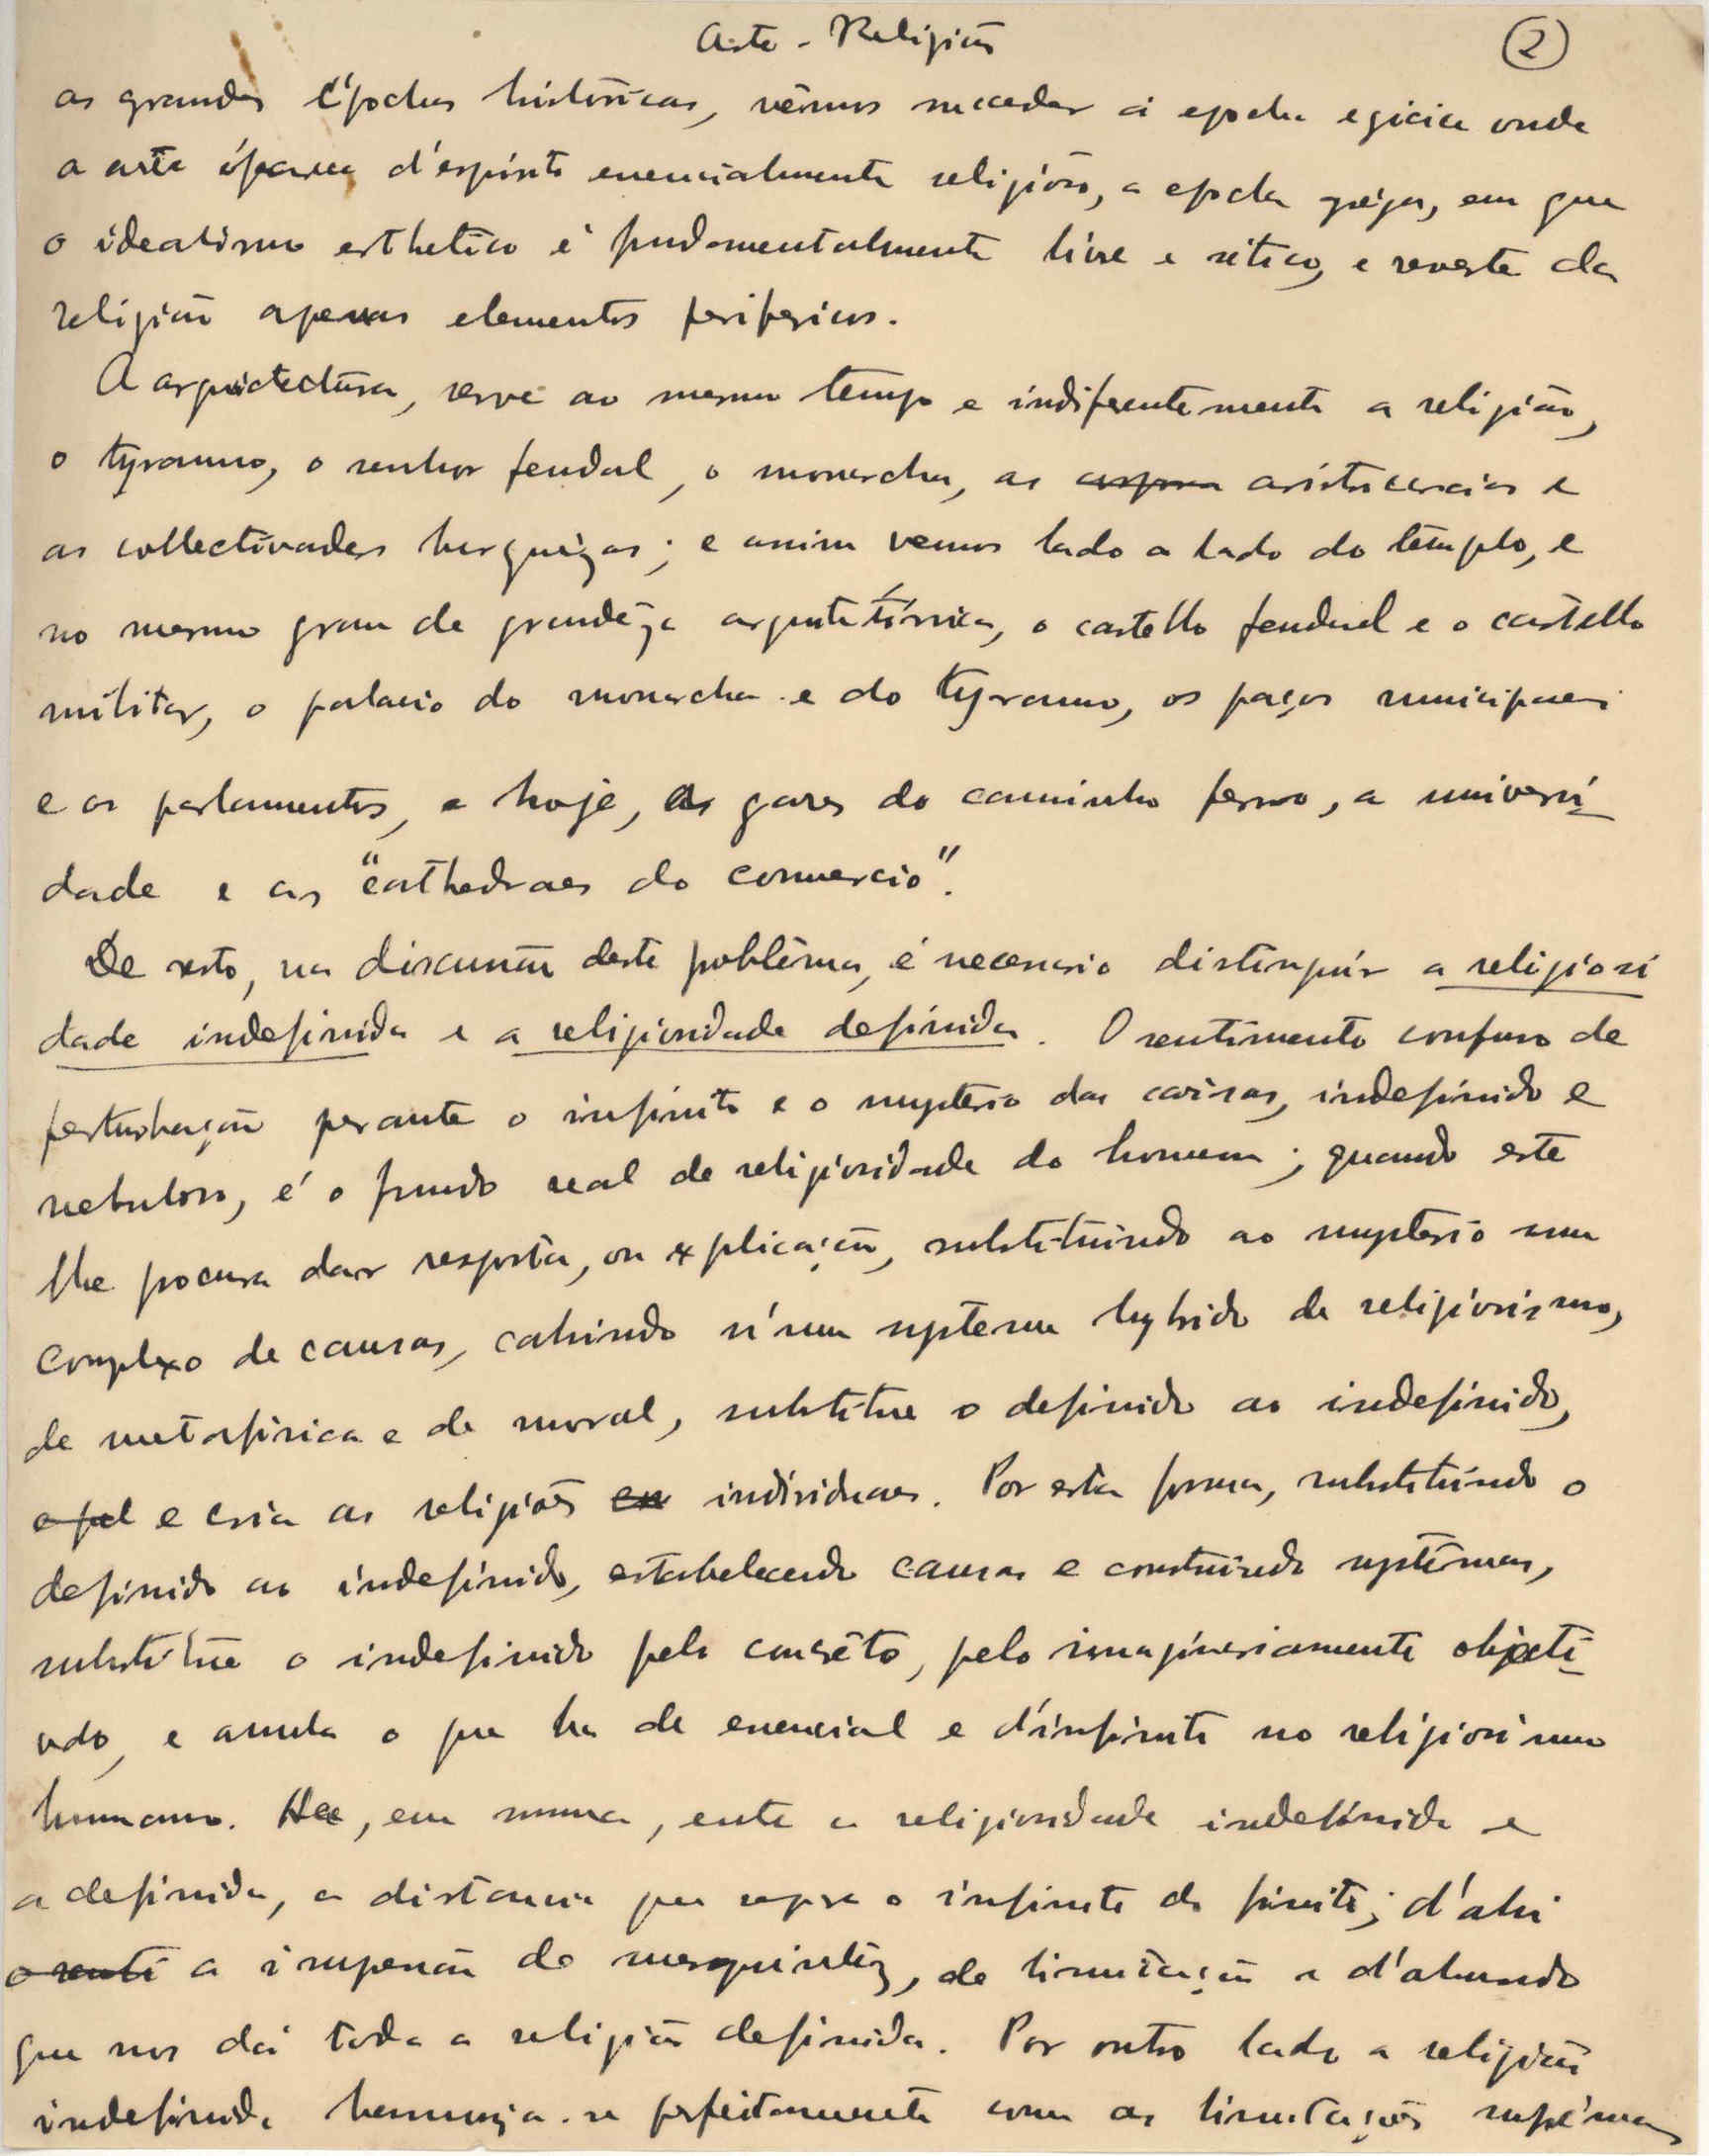 Arte - Religião
2
as grandes épochas históricas, vêmos succeder á epocha egicia onde
a arte aparece d'espirito essencialmente religioso, a epocha grêga, em que
o idealismo esthetico é fundamentalmente livre e critico, e reveste da
religião apenas elementos perifericos.
A arquictectura, serve ao mesmo tempo e indiferentemente a religião,
o tyranno, o senhor feudal, o monarcha, as aristocracias e
as collectivades burguêzas; e assim vemos lado a lado do têmplo, e
no mesmo grau de grandêza arquitetónica, o castello feudal e o castello
militar, o palacio do monarcha e do tyranno, os paços municipaes
e os parlamentos, e hoje, as gares do caminho ferro, a universi-
dade e as "cathedraes do commercio".
De resto, na discussão deste problêma, é necessario distinguir a religiosi
dade indefinida e a religiosidade definida. O sentimento confuso de
perturbação perante o infinito e o mysterio das coisas, indefinido e
nebuloso, é o fundo real de religiosidade do homem; quando este
lhe procura dar resposta, ou explicação, substituindo ao mysterio um
complexo de causas, cahindo n'um systema hybrido de religiosismo,
de metasfisica e de moral, substitue o definido ao indefinido,
e cria as religiões individuaes. Por esta forma, substituindo o
definido ao indefinido, estabelecendo causas e construindo systêmas,
substitue o indefinido pelo concrêto, pelo imaginariamente objecti-
vado, e anula o que ha de essencial e d'infinito no religiosismo
humano. Ha, em summa, entre a religiosidade indefinida e
a definida, a distancia que separa o infinito do finito; d'ahi
a impressão de mesquinhêz, de limitação e d'absurdo
que nos dá toda a religião definida. Por outro lado a religião
indefinida harmoniza-se perfeitamente com as limitações suprêmas